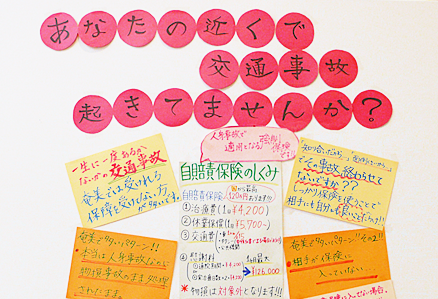 あなたの近くで
交通事故
起きてませんか？
人身事故で
適用となる強制
保険
だよ！
自賠責保険のしくみ
自賠責保険
120万円
①治療費(1日¥4,200)
②休業保償(1日¥5,700〜
③交通費
④慰謝料
1カ月最大
¥126,000
※物損は対象外となります!!!
一生に一度あるか
ないかの交通事故
奄美では受けれる
保障を受けない方
が多いです。
知り合いだから
でその事故終わらせて
ないですか？？
しっかり保険を使うことで
相手にも自分も良いことだらけ!!
奄美で多いパターン!!
本当は人身事故なのに
物損事故のまま処理
されたまま。
奄美で多いパターン!!その2!!
相手が保険に
入っていない。